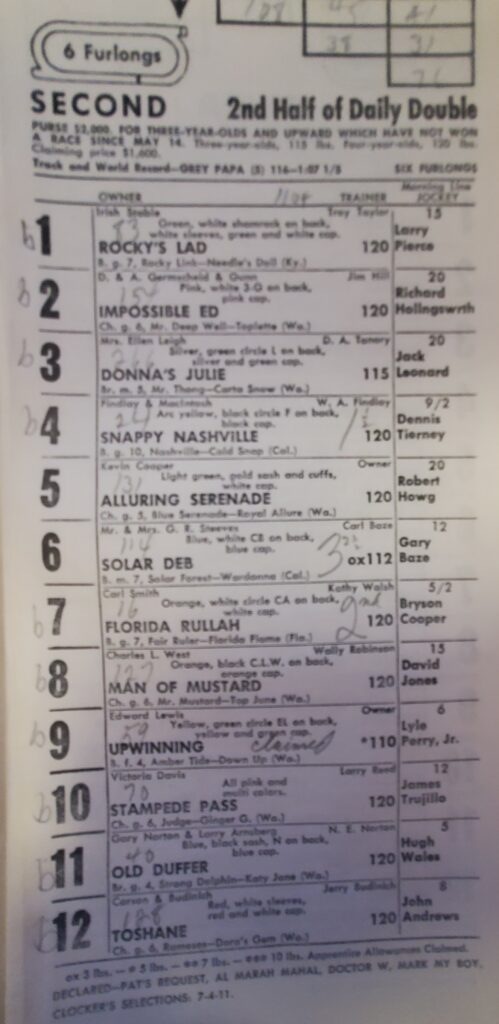 6 Furlongs
SECOND 2nd Half of Daily Double
PURSE $2,000. FOR THREE-YEAR-OLDS AND UPWARD WHICH HAVE NOT WON
A RACE SINCE MAY 14. Three-year-olds, 115 lbs. Four-year-olds, 120 lbs.
Claiming price $1,600.
Track and World Record—GREY PAPA (5) 116—1:07 1/5 SIX FURLONGS
Morning Line
OWNER TRAINER JOCKEY
Irish Stable Troy Taylor 15
1 Green, white shamrock on back, Larry
white sleeves, green and white cap.
ROCKY'S LAD 120 Pierce
B. g. 7, Rocky Link—Needle's Doll (Ky.)
D. & A. Germscheid & Gunn Jim Hill 20
2 Pink, white 3-G on back, Richard
pink cap.
IMPOSSIBLE ED 120 Hollingswrth
Ch. g. 6, Mr. Deep Well—Toplette (Wa.)
Mrs. Ellen Leigh D. A. 20
3 Silver, green circle L on back, Jack
silver and green cap.
DONNA'S JULIE 115 Leonard
Br. m. 5, Mr. Thong—Carta Snow (Wa.)
Findlay & MacIntosh W. A. Findlay 9/2
4 Arc yellow, black circle F on back, Dennis
black cap.
SNAPPY NASHVILLE 120 Tierney
B. g. 10, Nashville—Cold Snap (Cal.)
Kevin Cooper Owner 20
5 Light green, gold sash and cuffs, Robert
white cap.
ALLURING SERENADE 120 Howg
Ch. g. 5, Blue Serenade—Royal Allure (Wa.)
Mr. & Mrs. G. R. Steeves Carl Baze 12
6 Blue, white CB on back, Gary
blue cap.
SOLAR DEB ox112 Baze
B. m. 7, Solar Forest—Wardanna (Cal.)
Carl Smith Kathy Walsh 5/2
7 Orange, white circle CA on back, Bryson
white cap. 2nd
FLORIDA RULLAH 120 Cooper
B. g. 7, Fair Ruler—Florida Flame (Fla.)
Charles L. West Wally Robinson 15
8 Orange, black C.L.W. on back, David
orange cap.
MAN OF MUSTARD 120 Jones
Ch. g. 6, Mr. Mustard—Top June (Wa.)
Edward Lewis Owner 6
9 Yellow, green circle EL on back, Lyle
yellow and green cap.
UPWINNING claimed *110 Perry, Jr.
B. f. 4, Amber Tide—Down Up (Wa.)
Victoria Davis Larry Reed 12
10 All pink and James
multi colors.
STAMPEDE PASS 120 Trujillo
Ch. g. 6, Judge—Ginger G. (Wa.)
Gary Norton & Larry Arnsberg N. E. Norton 5
11 Blue, black sash, N on back, Hugh
blue cap.
OLD DUFFER 120 Wales
Br. g. 4, Strong Dolphin—Katy Jane (Wa.)
Carson & Budinich Jerry Budinich 8
12 Red, white sleeves, John
red and white cap.
TOSHANE 120 Andrews
Ch. g. 6, Ramases—Dora's Gem (Wa.)
ox 3 lbs. — * 5 lbs. — ** 7 lbs. — *** 10 lbs. Apprentice Allowances Claimed.
DECLARED—PAT'S REQUEST, AL MARAH MAHAL, DOCTOR W, MARK MY BOY.
CLOCKER'S SELECTIONS: 7-4-11.